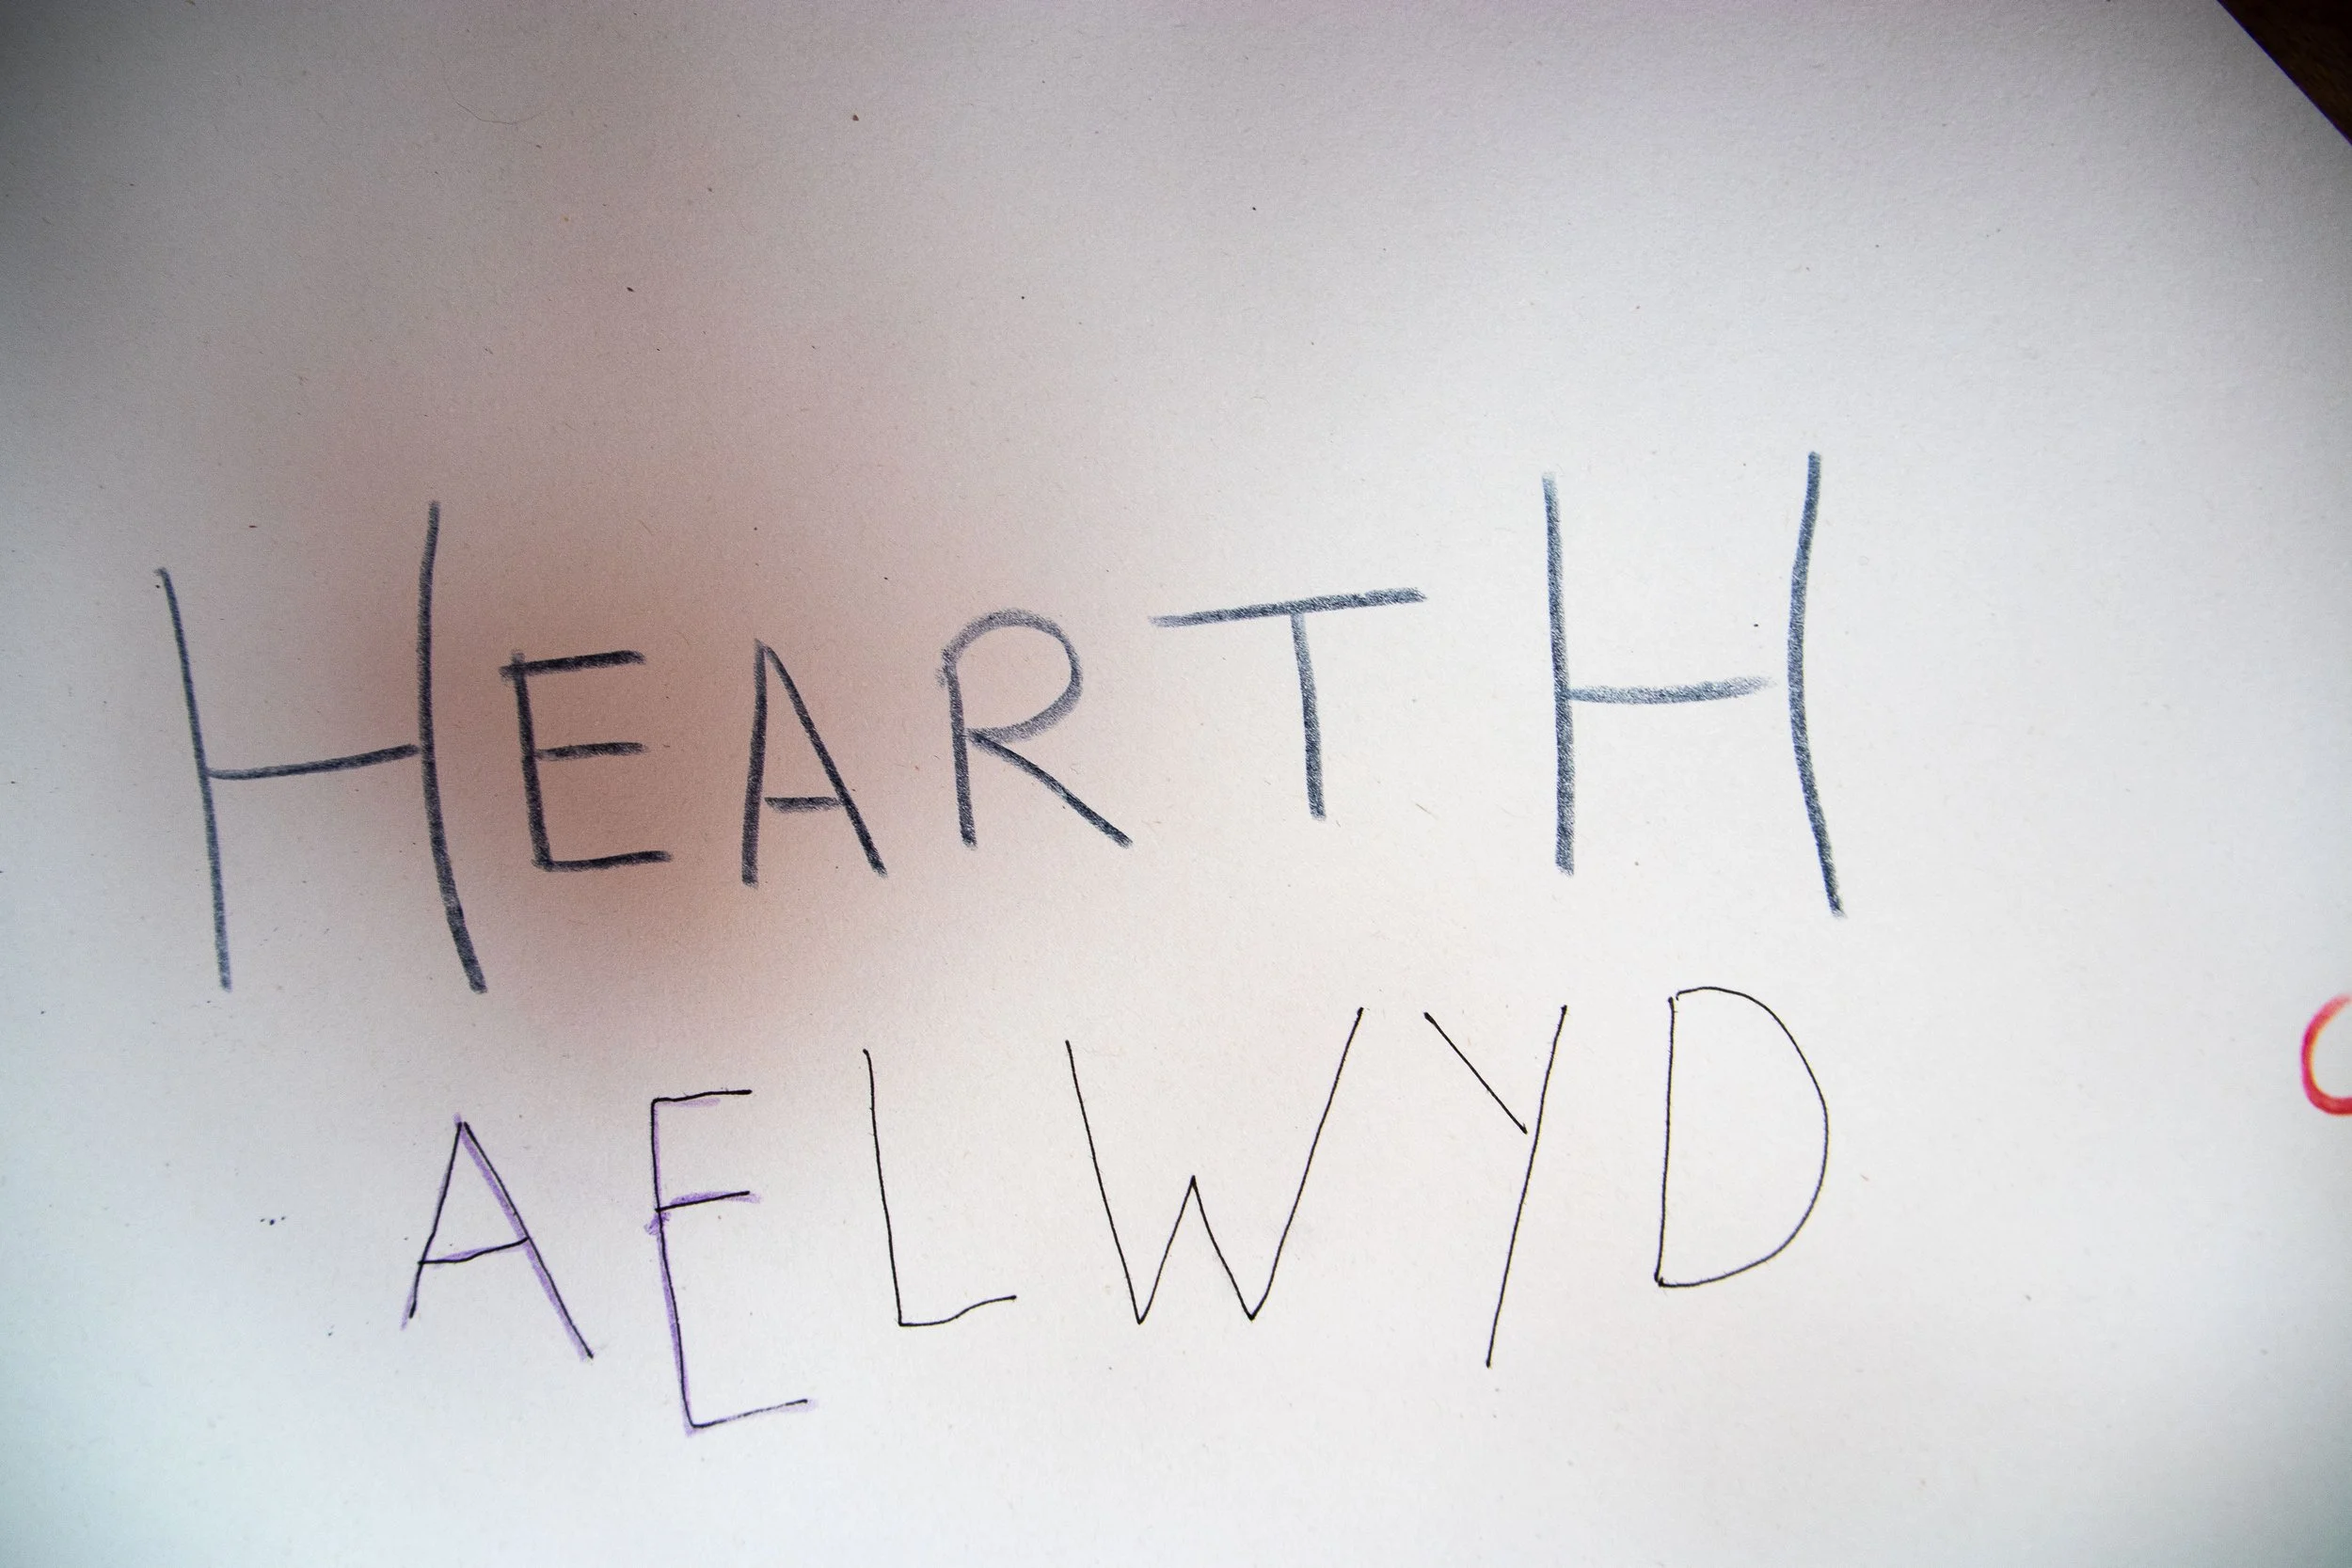 HEARTH
AELWYD